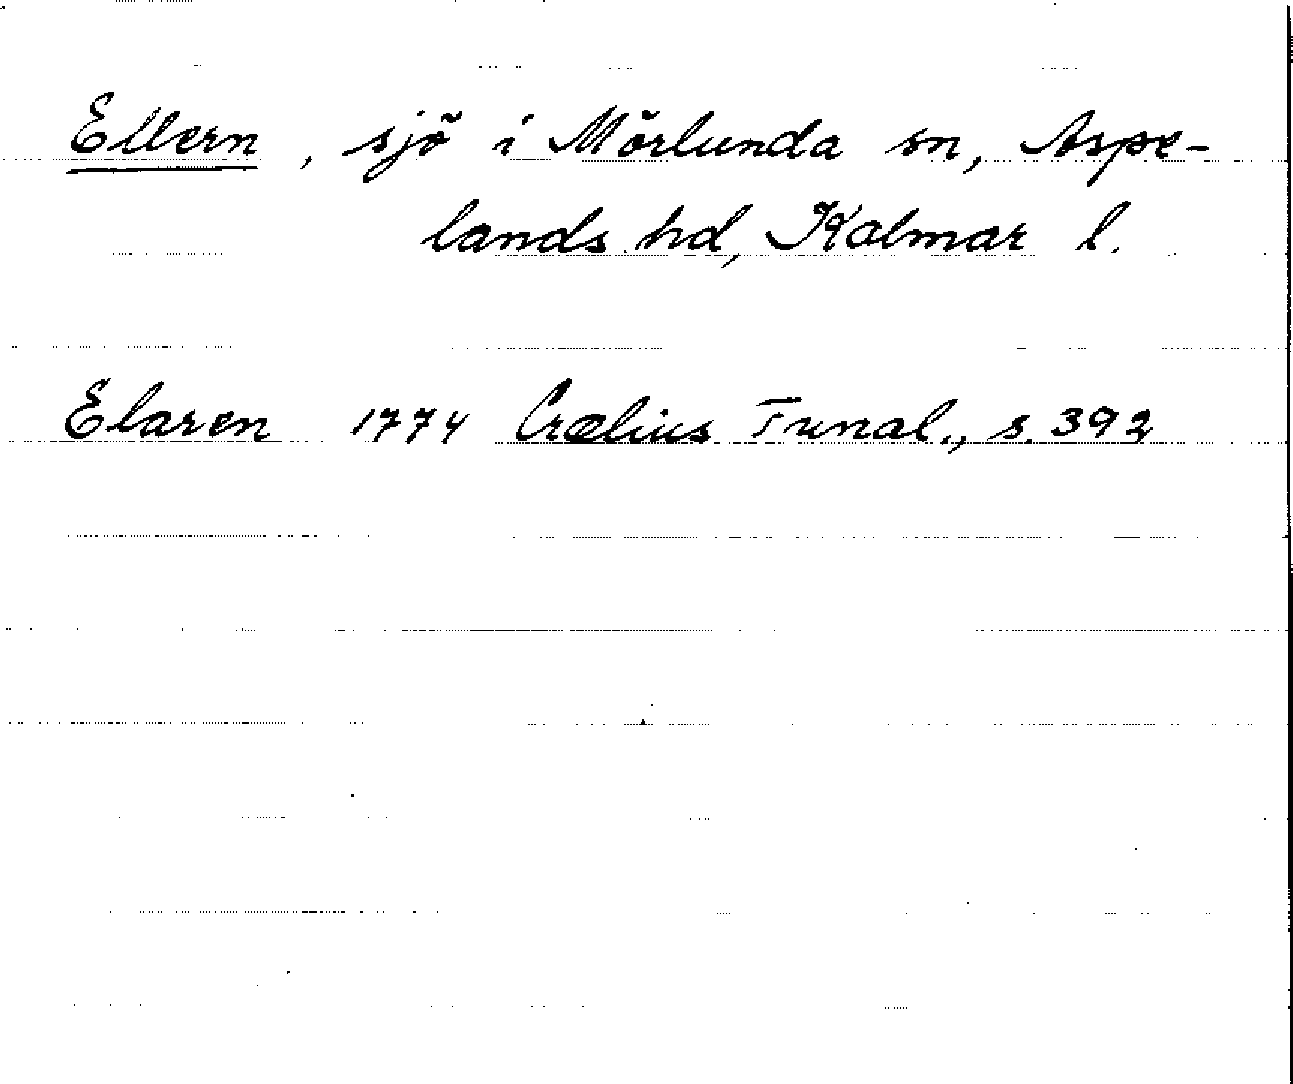 Ellern, sjö i Mörlunda sn, Aspe-
lands hd, Kalmar l.
Elaren 1774 Crælius Tunal., s. 392